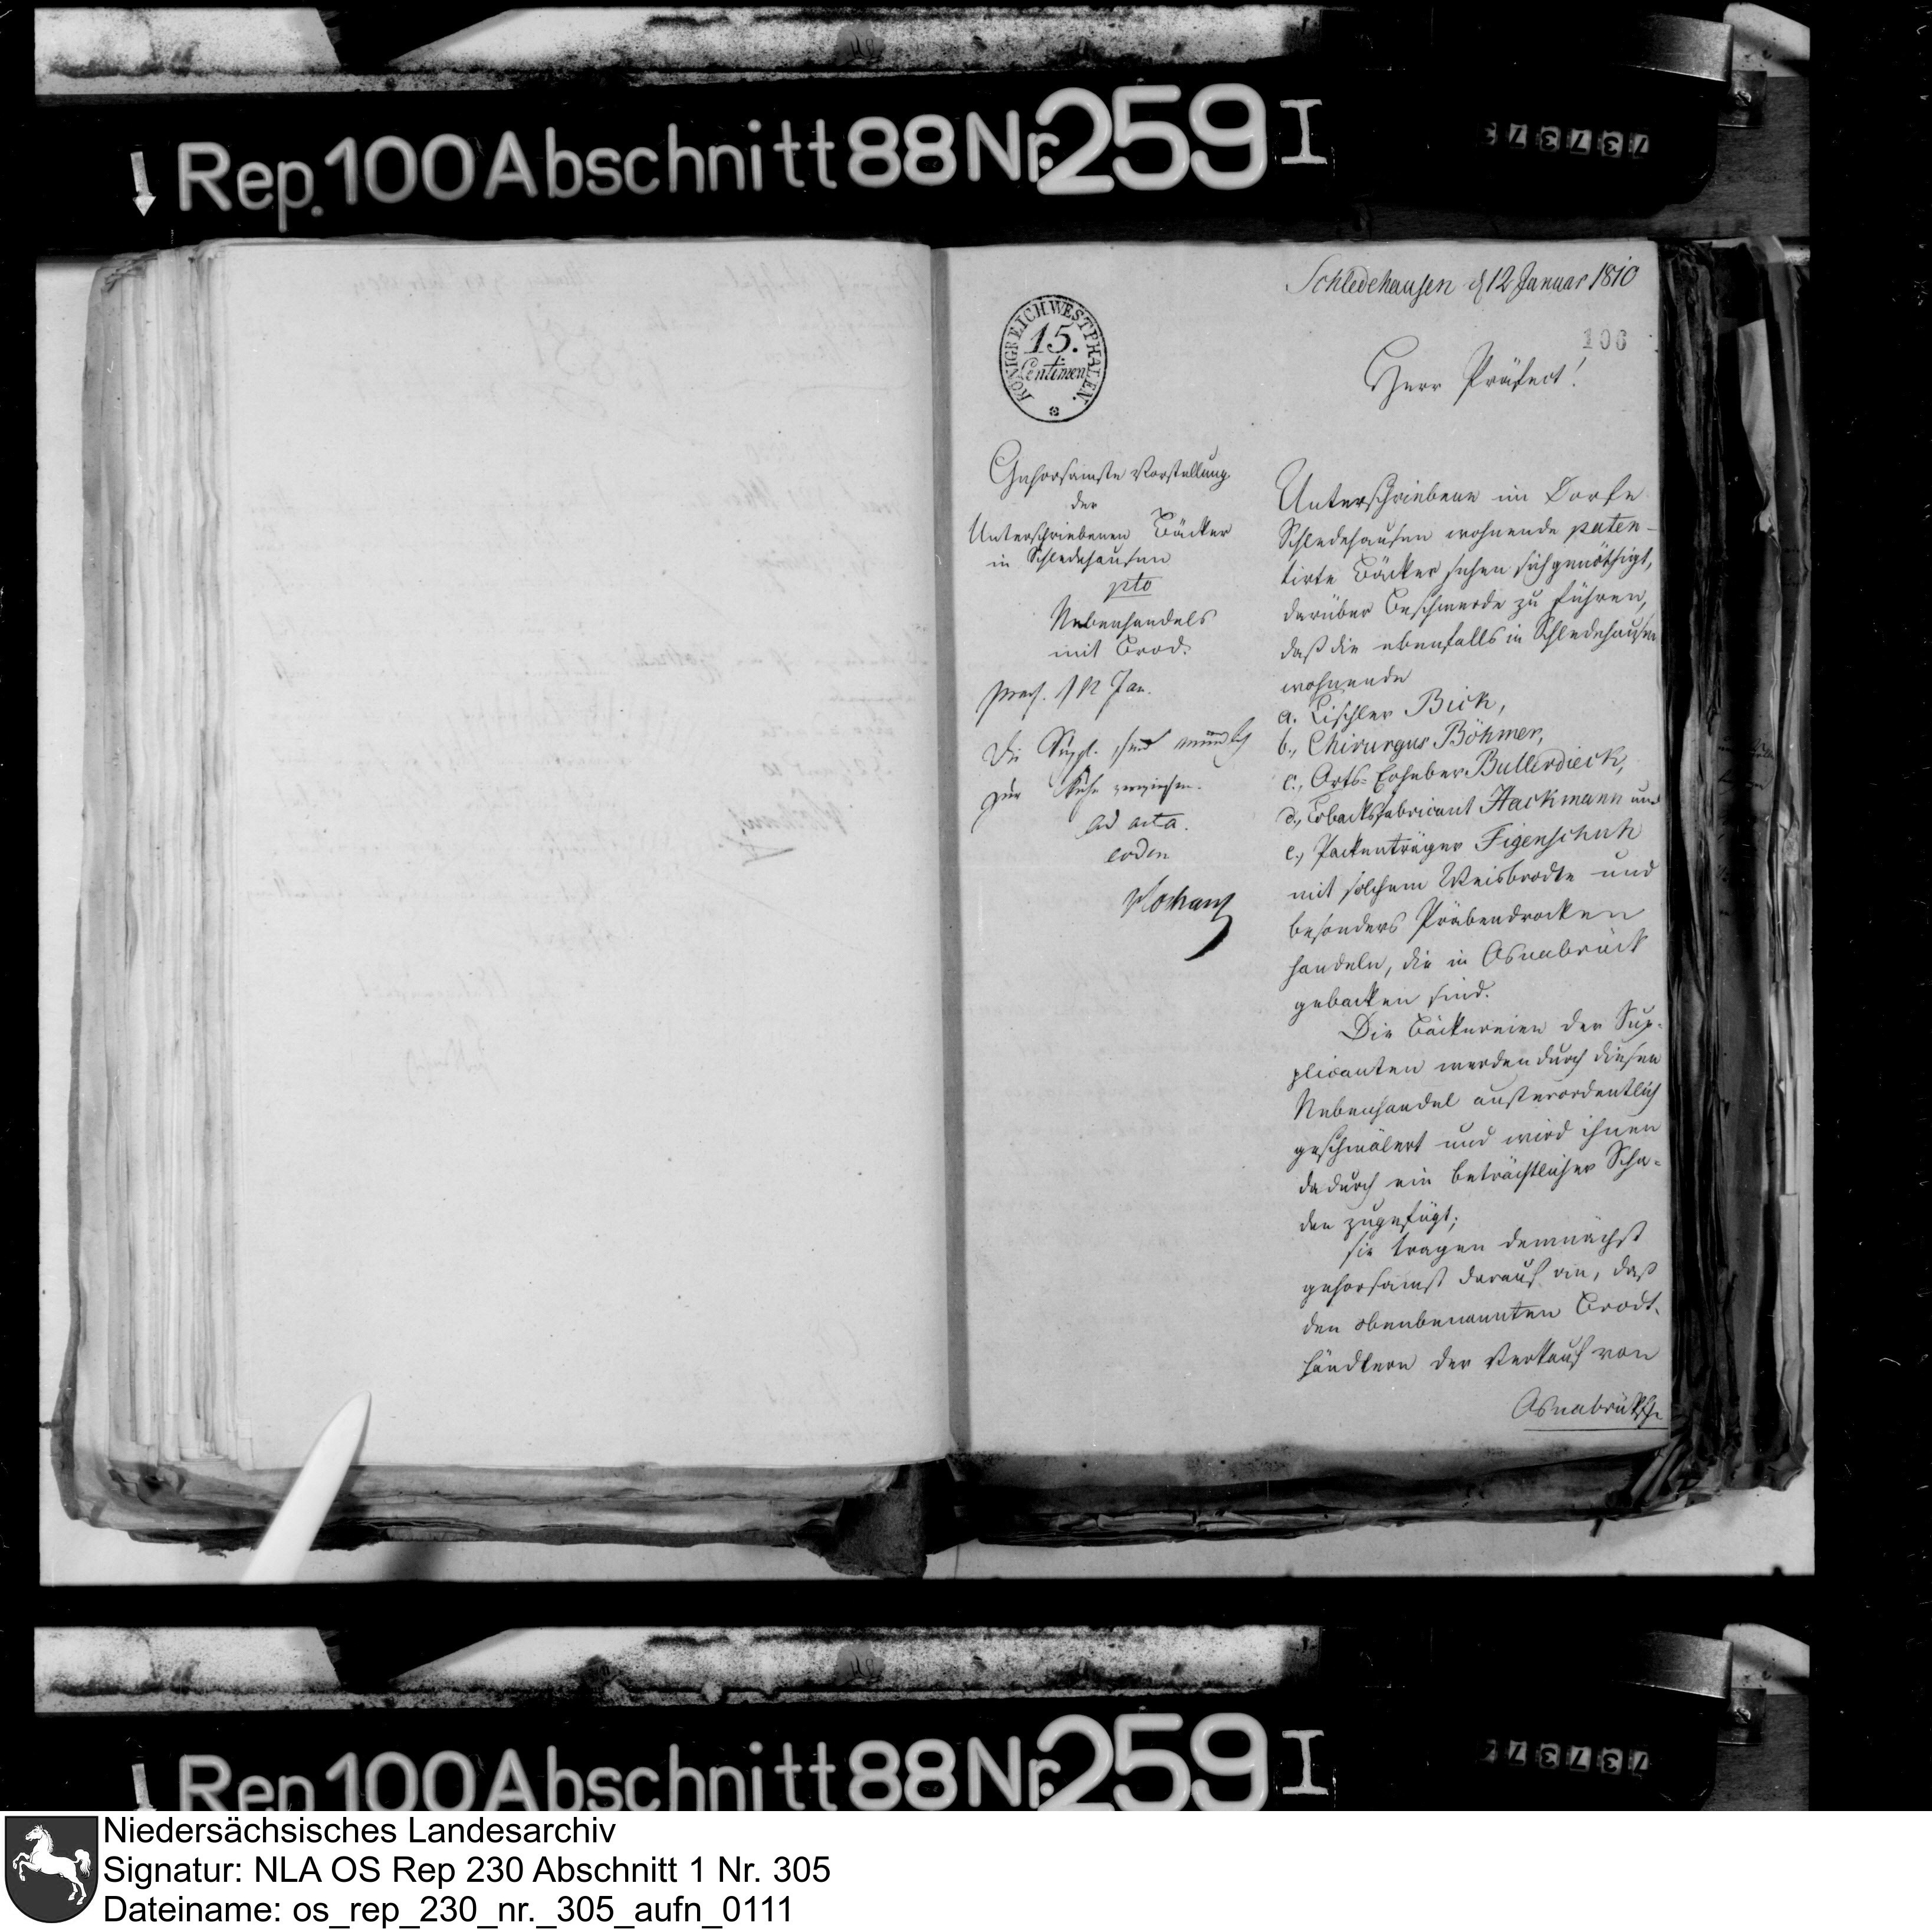 Rep. 100 Abschnitt 88 Nr. 259 I
737373
Schledehausen d 12 Januar 1810
106
KÖNIGREICH WESTPHALEN.
15.
Centimen
Herr Präfect!
Gehorsamste Vorstellung
der
Unterschriebenen Bäcker
in Schledehausen
pto
Nebenhandels
mit Brod.
praes. d 12 Jan.
Die Suppl. sind mündlich
zur Ruhe verwiesen.
ad acta.
eodem
Unterschriebene im Dorfe
Schledehausen wohnende paten-
tirte Bäcker sehen sich genöthigt,
darüber Beschwerde zu führen,
daß die ebenfalls in Schledehausen
wohnende
a. Tischler Bick,
b., Chirurgus Böhmer,
c., Orts-Erheber Bullerdieck,
d., Tobacksfabricant Hackmann und
e., Packenträger Figenschuh
mit solchem Weisbrodte und
besonders Präbendrocken
handeln, die in Osnabrück
gebacken sind.
Die Bäckereien der Sup-
plicanten werden durch diesen
Nebenhandel ausserordentlich
geschmälert und wird ihnen
dadurch ein beträchtlicher Scha-
den zugefügt;
sie tragen demnächst
gehorsamst darauf an, daß
den obenbenannten Brodt-
händlern der Verkauf von
Osnabrücksche
Rep 100 Abschnitt 88 Nr. 259 I
737373
Niedersächsisches Landesarchiv
Signatur: NLA OS Rep 230 Abschnitt 1 Nr. 305
Dateiname: os_rep_230_nr._305_aufn_0111